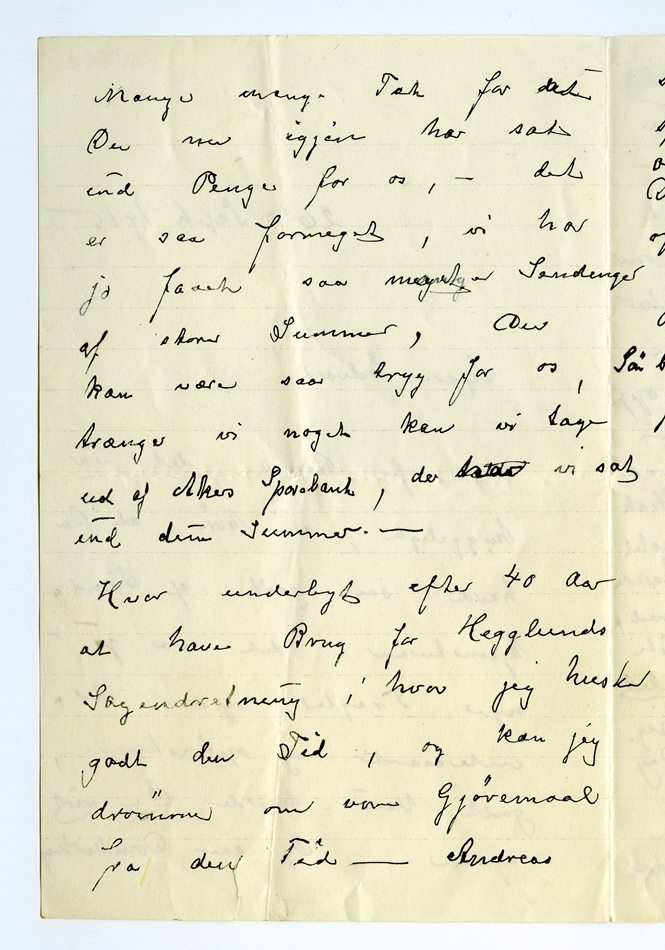 Mange mange Tak for det
De nu igjen har sat
ind Penge for os, – det
er saa formeget, vi har
jo faaet saa Sendinger
af store Summer, De
kan være saa tryg for os,
trænger vi noget kan vi tage
ud af Akers Sparebank, der vi sat
ind den Summer. —
Hvor underligt efter 40 Aar
at have Brug for Hegglunds
i hvor jeg husker
godt den Tid, og kan jeg
drømme om vore Gjøremaal
fra den Tid — Andreas